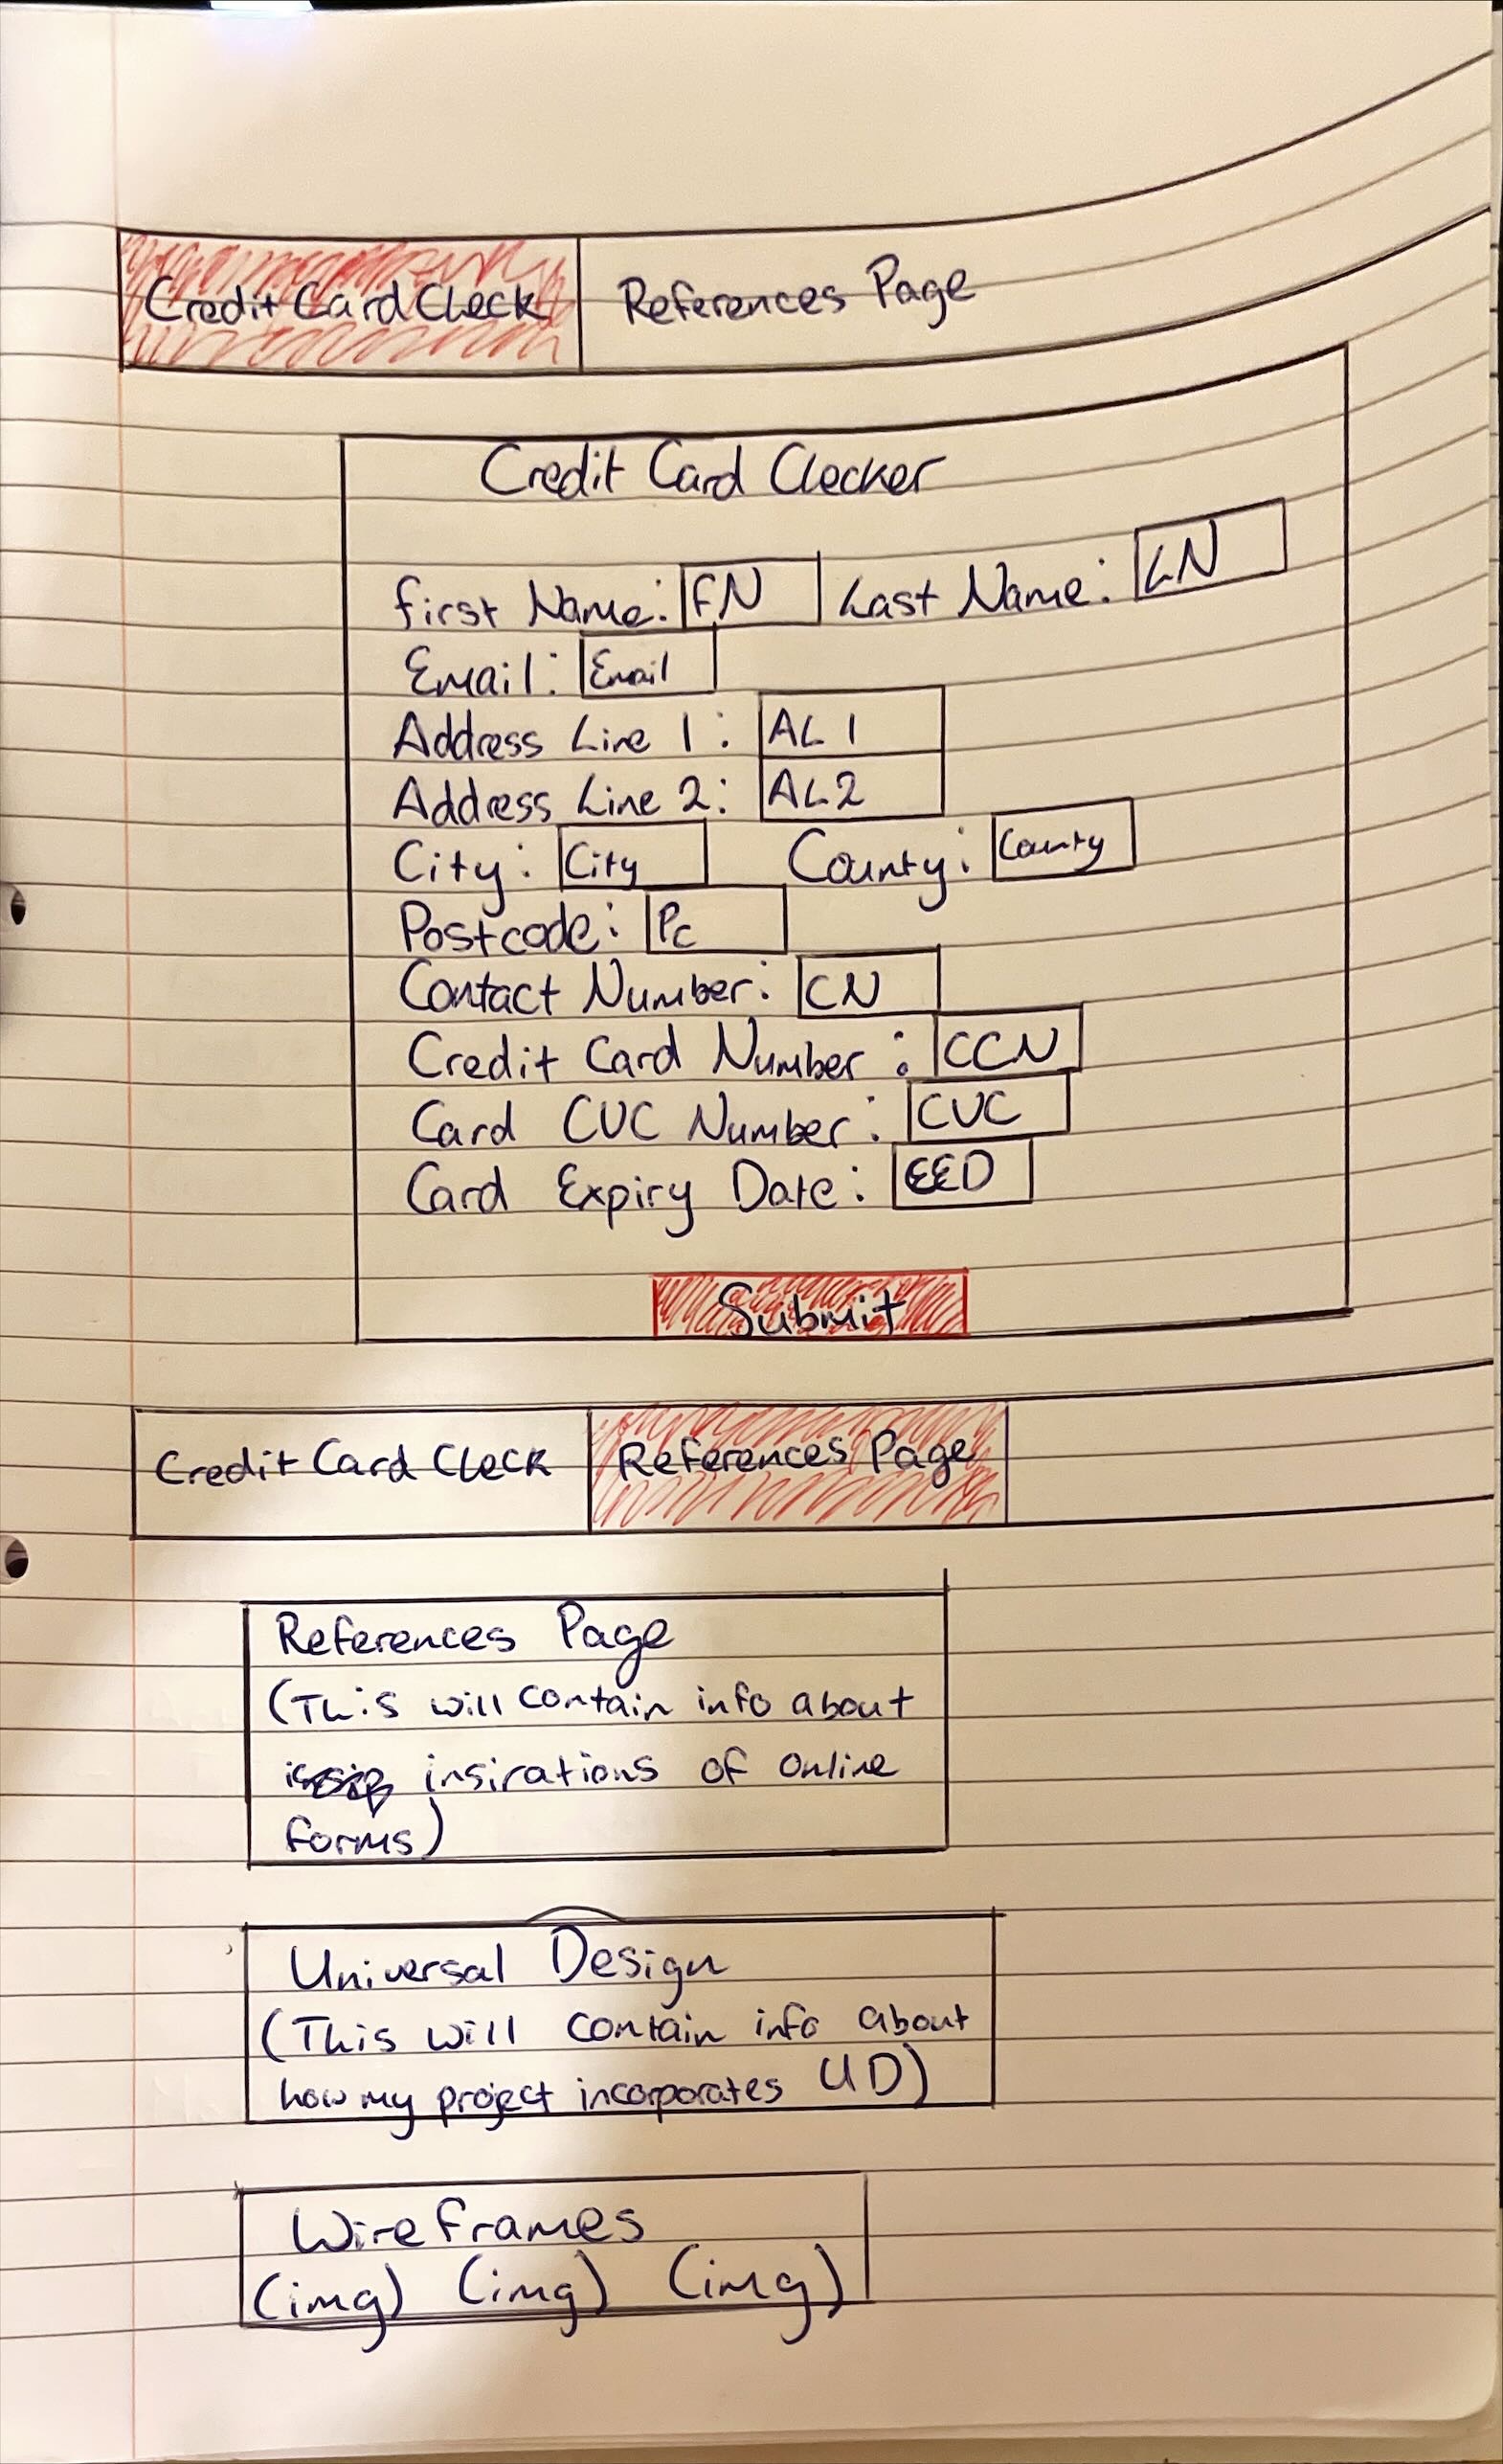 Credit Card Check References Page
Credit Card Checker
First Name: FN Last Name: LN
Email: Email
Address Line 1: AL 1
Address Line 2: AL2
City: City County: County
Postcode: Pc
Contact Number: CN
Credit Card Number: CCN
Card CVC Number: CVC
Card Expiry Date: EED
Submit
Credit Card Check References Page
References Page
(This will contain info about
insirations of online
forms)
Universal Design
(This will contain info about
how my project incorporates UD)
Wireframes
(img) (img) (img)